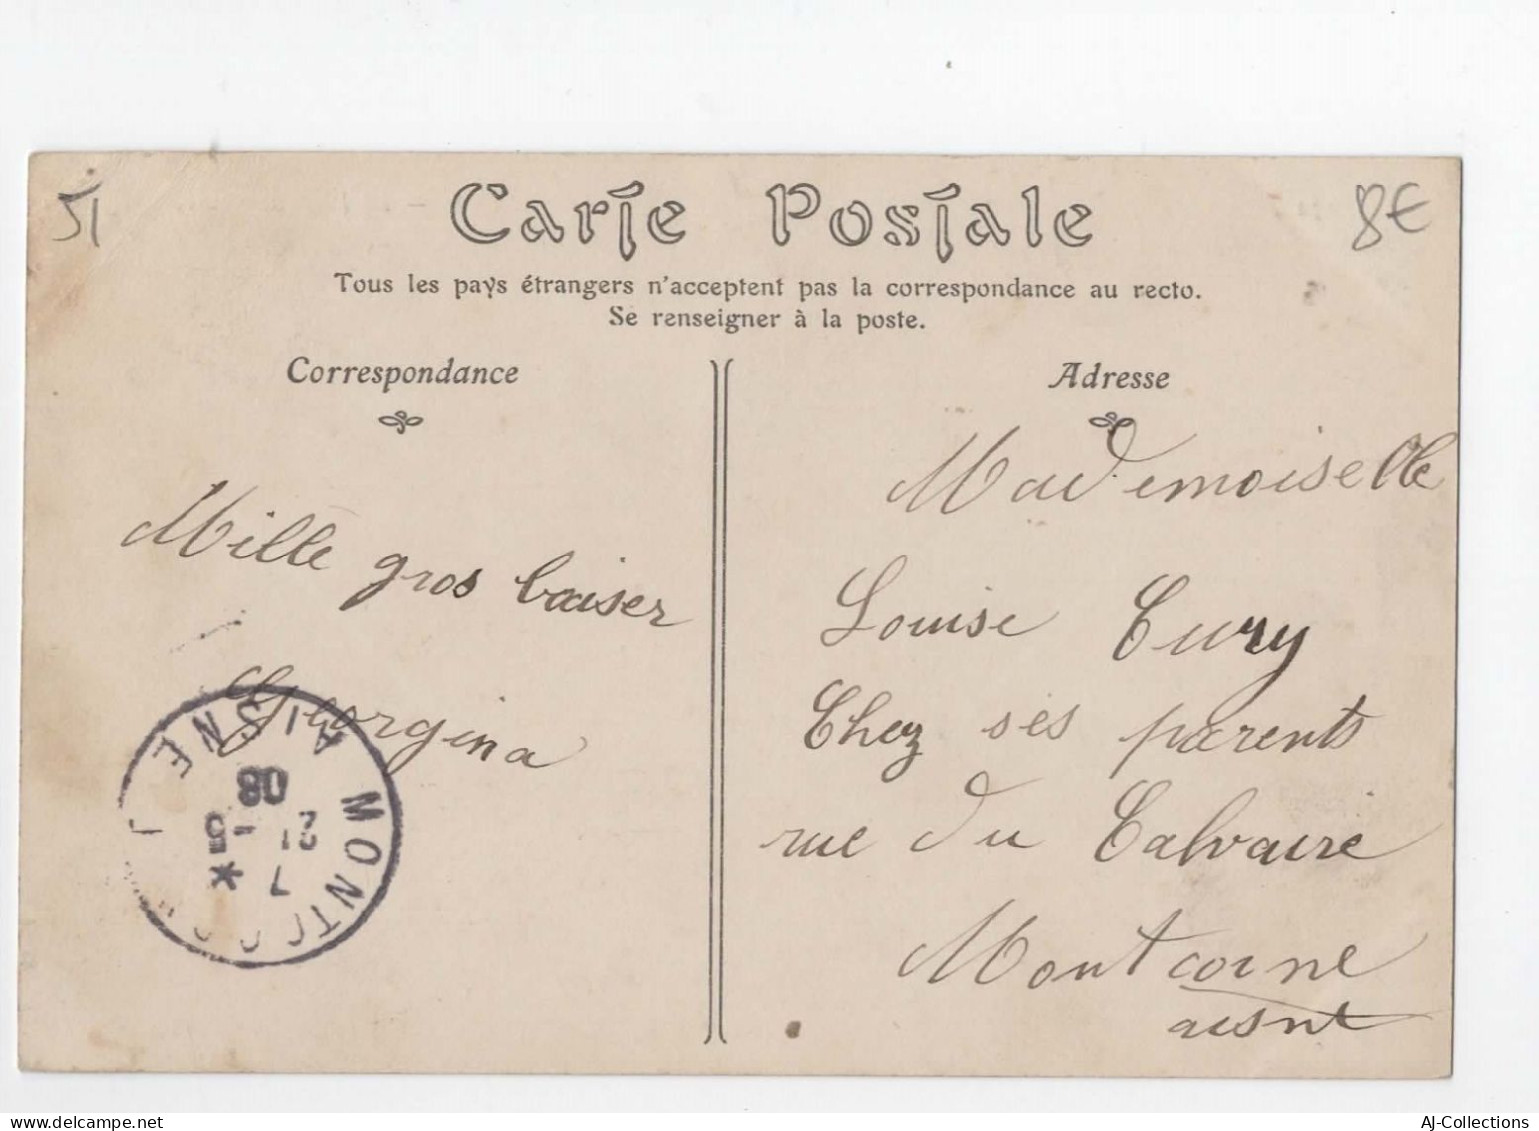 51
8€
Carte Postale
Tous les pays étrangers n'acceptent pas la correspondance au recto.
Se renseigner à la poste.
Correspondance
Mille gros baiser
Georgina
MONTCOR
AISNE
7 *
21 -5
08
Adresse
Mademoiselle
Louise Cury
Chez ses parents
rue du Calvaire
Montcorne
aisne
AJ-Collections